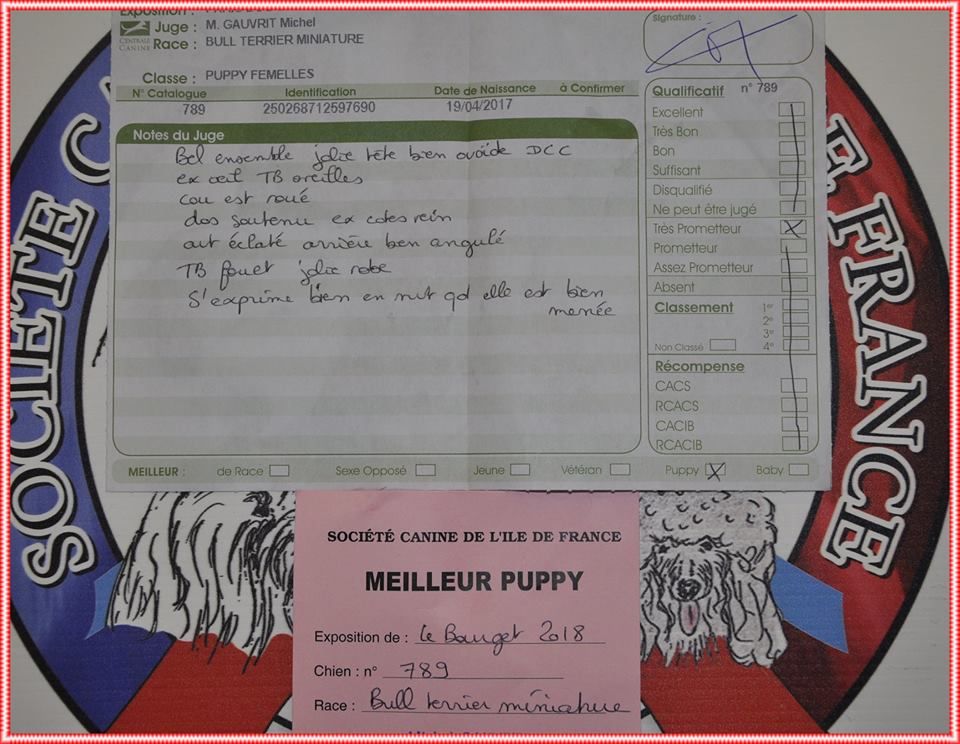 Juge : M. GAUVRIT Michel
CENTRALE CANINE
Race : BULL TERRIER MINIATURE
Signature :
Classe : PUPPY FEMELLES
N° Catalogue Identification Date de Naissance à Confirmer
789 250268712597690 19/04/2017
Notes du Juge
Bel ensemble jolie tête bien ovoïde DCC
ex œil TB oreilles
cou est roué
dos soutenu ex cotes rein
aut éclaté arrière ben angulé
TB fouet jolie robe
S'exprime bien en mvt qd elle est bien
menée
Qualificatif n° 789
Excellent
Très Bon
Bon
Suffisant
Disqualifié
Ne peut être jugé
Très Prometteur X
Prometteur
Assez Prometteur
Absent
Classement 1er
2e
3e
Non Classé 4e
Récompense
CACS
RCACS
CACIB
RCACIB
MEILLEUR : de Race Sexe Opposé Jeune Vétéran Puppy X Baby
SOCIETE
FRANCE
SOCIÉTÉ CANINE DE L'ILE DE FRANCE
MEILLEUR PUPPY
Exposition de : Le Bourget 2018
Chien : n° 789
Race : Bull terrier miniature